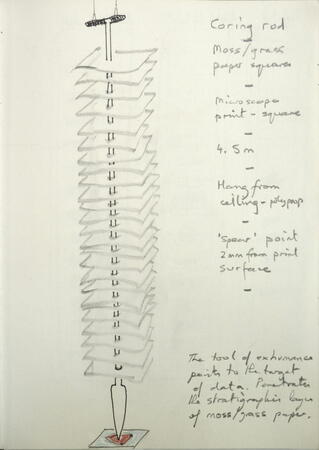 Coring rod
–
Moss/grass
paper squares
–
Microscope
print - square
–
4.5m
–
Hang from
ceiling - polyprop
–
'Spear' point
2mm from print
surface
–
The tool of exhumance
points to the target
of data. Penetrates
the stratigraphic layers
of moss/grass paper.